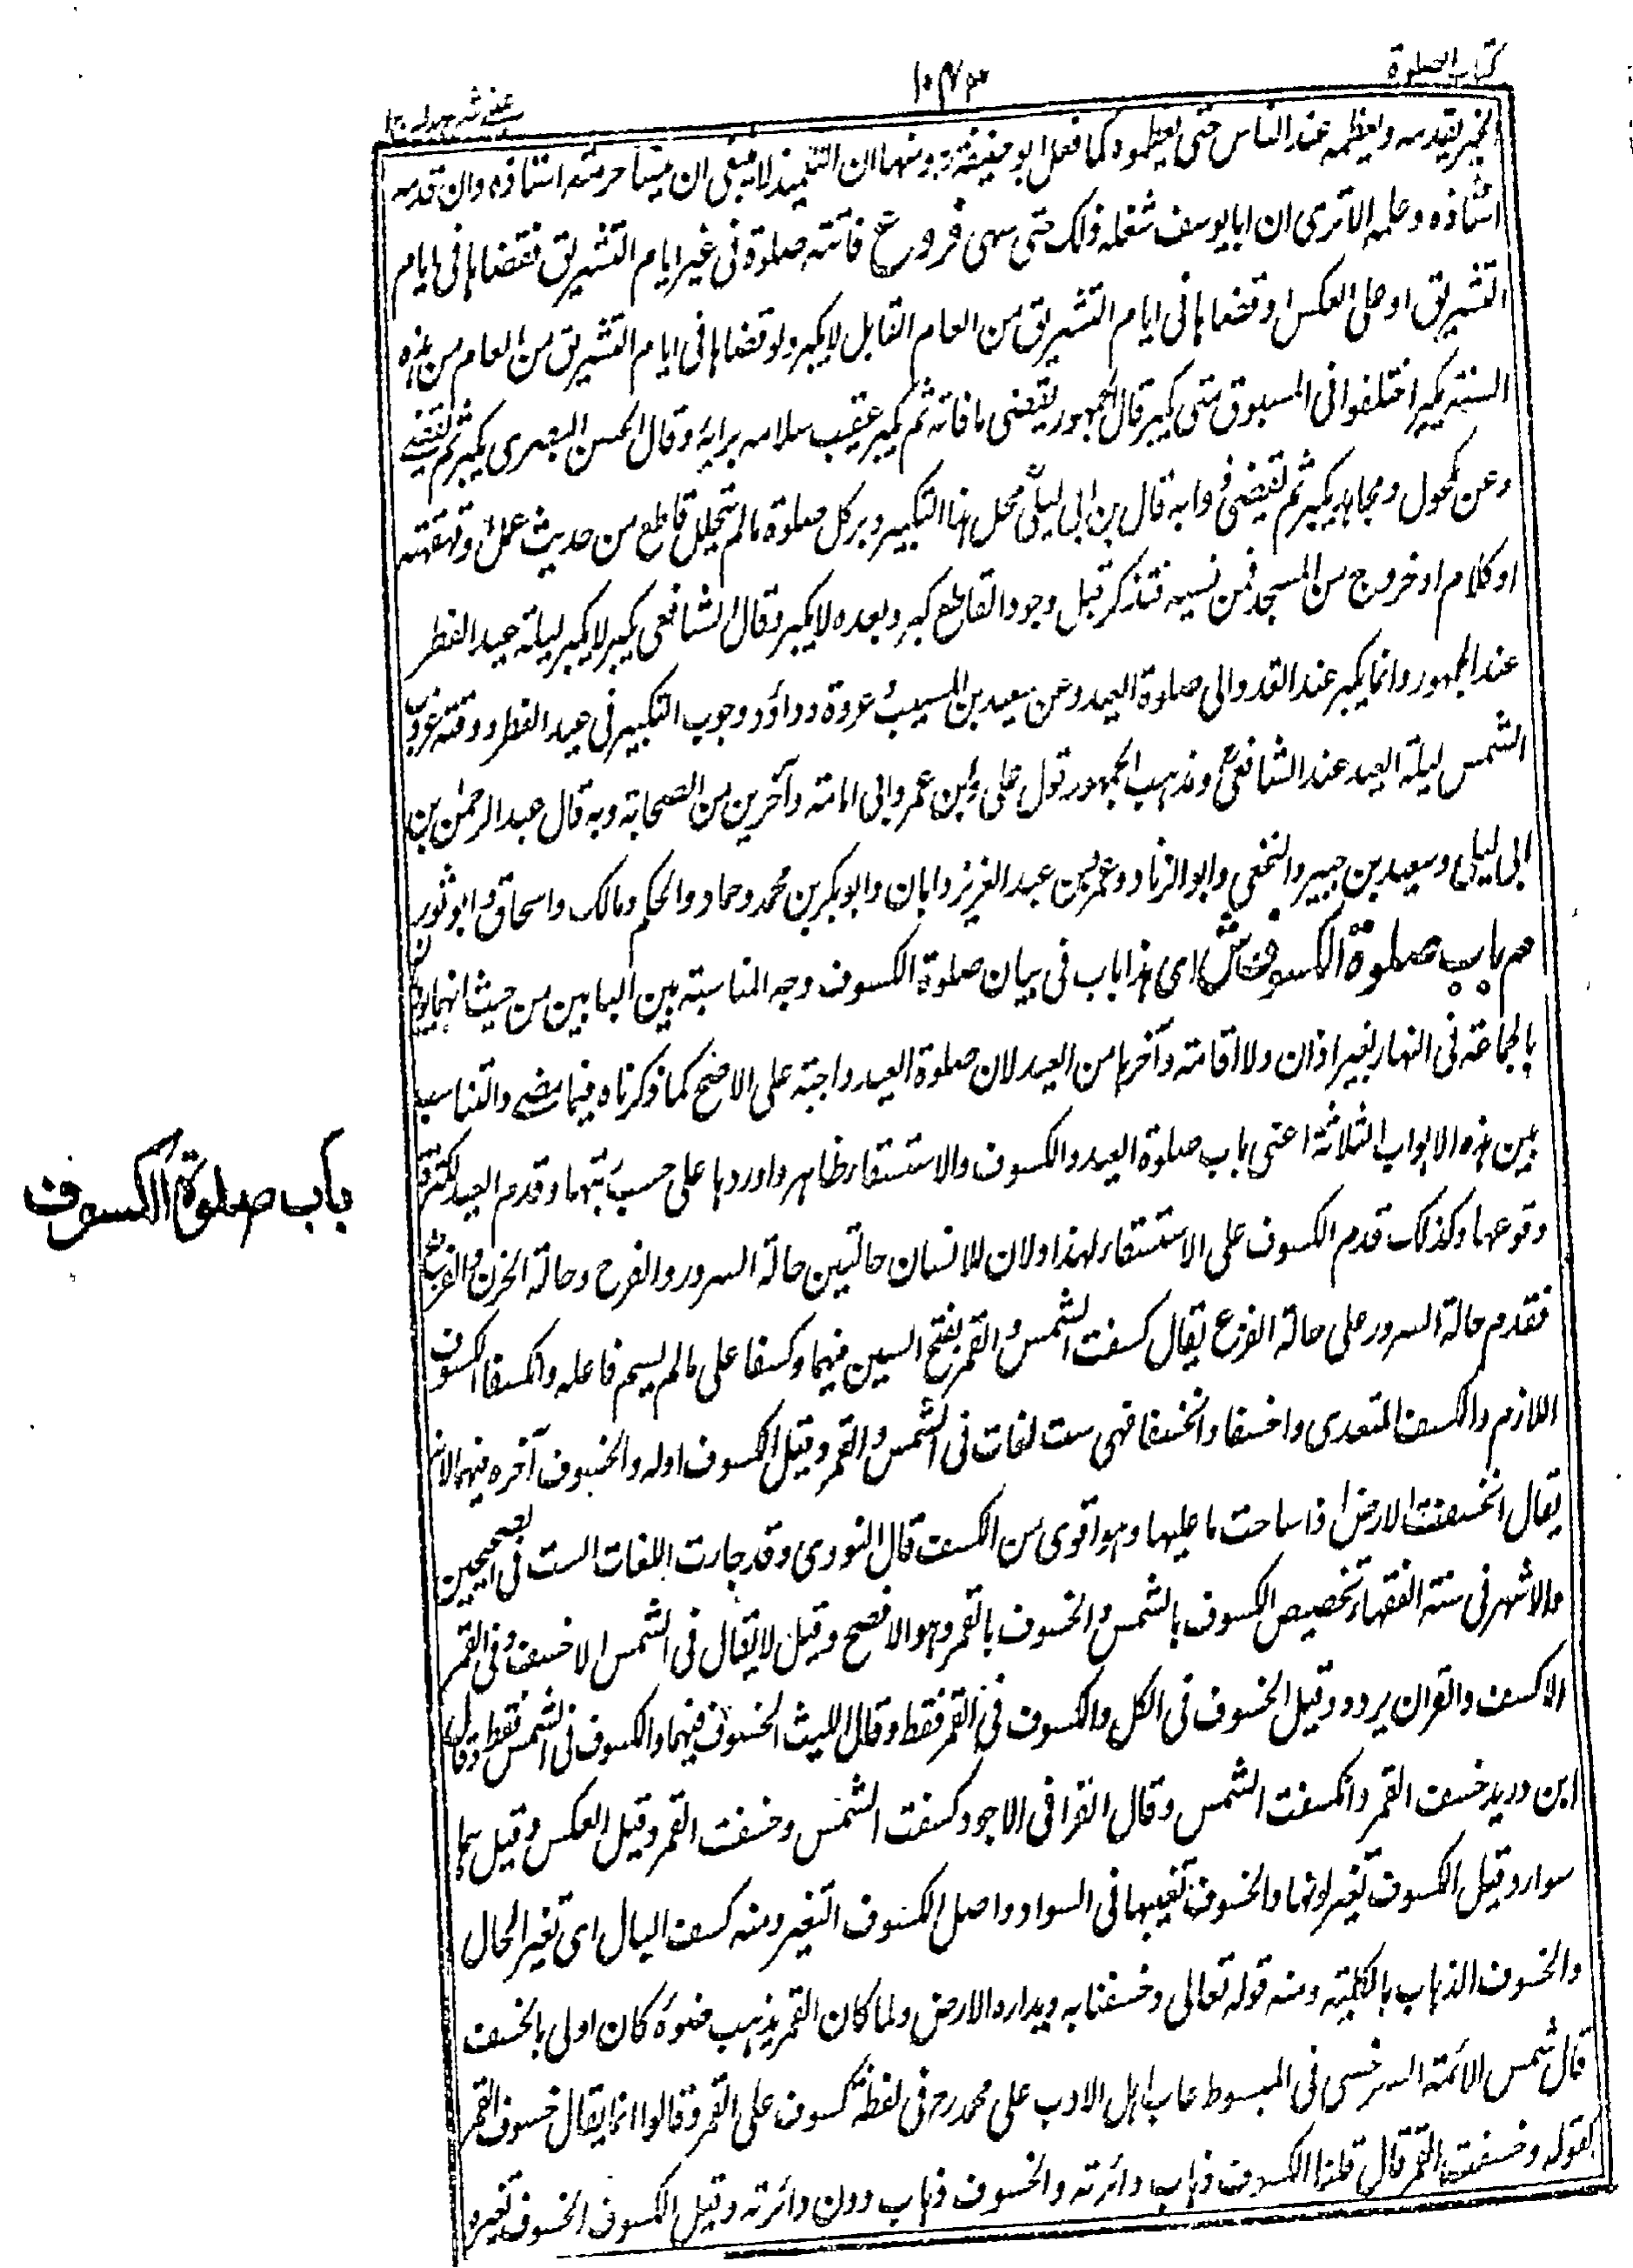 كتاب الصلوة
١٠٤٣
عينى شرح هدايه ج ا
الخير يقدمه ويعظمه عند الناس حتى يعظموه كما فعل ابو حنيفة رح ومنها ان التلميذ لا ينبغى ان ينسأ حرمته استاذه وان قدمه
استاذه وعلمه الا ترى ان ابا يوسف شغله ذلك حتى سهى فروع فاتته صلوة فى غير ايام التشريق فقضاها فى ايام
التشريق او على العكس او قضاها فى ايام التشريق من العام القابل لا يكبر ولو قضاها فى ايام التشريق من العام من هذه
السنة يكبر اختلفوا فى المسبوق متى يكبر قال الجمهور يقضى ما فاته ثم يكبر عقيب سلامه برايه وقال الحسن البصرى يكبر ثم يقضى
وعن مكحول ومجاهد يكبر ثم يقضى وبه قال بن ابى ليلى محل هذا التكبير دبر كل صلوة ما لم تتخلل قاطع من حديث عمل وقهقهة
او كلام او خروج من المسجد فمن نسيه فتذكر قبل وجود القاطع كبر وبعده لا يكبر وقال الشافعى يكبر لا يكبر ليلة عيد الفطر
عند الجمهور وانما يكبر عند الغدو الى صلوة العيد وعن سعيد بن المسيب وعروة وداؤد وجوب التكبير فى عيد الفطر ووقته غروب
الشمس ليلة العيد عند الشافعى ومذهب الجمهور قول على وابن عمر وابى امامة وآخرين من الصحابة وبه قال عبد الرحمن بن
ابى ليلى وسعيد بن جبير والنخعى وابو الزناد وعمر بن عبد العزيز وابان وابو بكر بن محمد وحماد والحكم ومالك واسحاق وابو ثور
م باب صلوة الكسوف ش اى هذا باب فى بيان صلوة الكسوف وجه المناسبة بين البابين من حيث انهما يؤديان
بالجماعة فى النهار بغير اذان ولا اقامة وآخرها من العيد لان صلوة العيد واجبة على الاصح كما ذكرناه فيما مضى والتناسب
بين هذه الابواب الثلاثة اعنى باب صلوة العيد والكسوف والاستسقاء ظاهر واوردها على حسب رتبتها وقدم العيد لكثرة
وقوعها وكذلك قدم الكسوف على الاستسقاء لهذا ولان للانسان حالتين حالة السرور والفرح وحالة الحزن والفزع
فقدم حالة السرور على حالة الفزع يقال كسفت الشمس والقمر بفتح السين فيهما وكسفا على ما لم يسم فاعله وانكسفا الكسوف
اللازم والكسف المتعدى واخسفا وانخسفا فهى ست لغات فى الشمس والقمر وقيل الكسوف اوله والخسوف آخره فيهما لانه
يقال انخسفت الارض اذا ساحت ما عليها وهو اقوى من الكسف قال النووى وقد جاءت اللغات الست فى الصحيحين
والاشهر فى سنة الفقهاء تخصيص الكسوف بالشمس والخسوف بالقمر وهو الافصح وقيل لا يقال فى الشمس الا خسف وفى القمر
الا كسف والقران يرده وقيل الخسوف فى الكل والكسوف فى القمر فقط وقال الليث الخسوف فيهما والكسوف فى الشمس فقط وقال
ابن دريد خسف القمر وانكسفت الشمس وقال الفرا فى الاجود كسفت الشمس وخسفت القمر وقيل العكس وقيل هما
سواء وقيل الكسوف تغير لونها والخسوف تغيبها فى السواد واصل الكسوف التغير ومنه كسف البال اى تغير الحال
والخسوف الذهاب بالكلية ومنه قوله تعالى وخسفنا به وبداره الارض ولما كان القمر يذهب ضوءه كان اولى بالخسف
قال شمس الائمة السرخسى فى المبسوط عاب اهل الادب على محمد رح فى لفظة كسوف على القمر وقالوا انما يقال خسوف القمر
كقوله وخسفت القمر قال قلنا الكسوف ذهاب دائرته والخسوف ذهاب دون دائرته وقيل الكسوف الخسوف تغيره
باب صلوة الكسوف